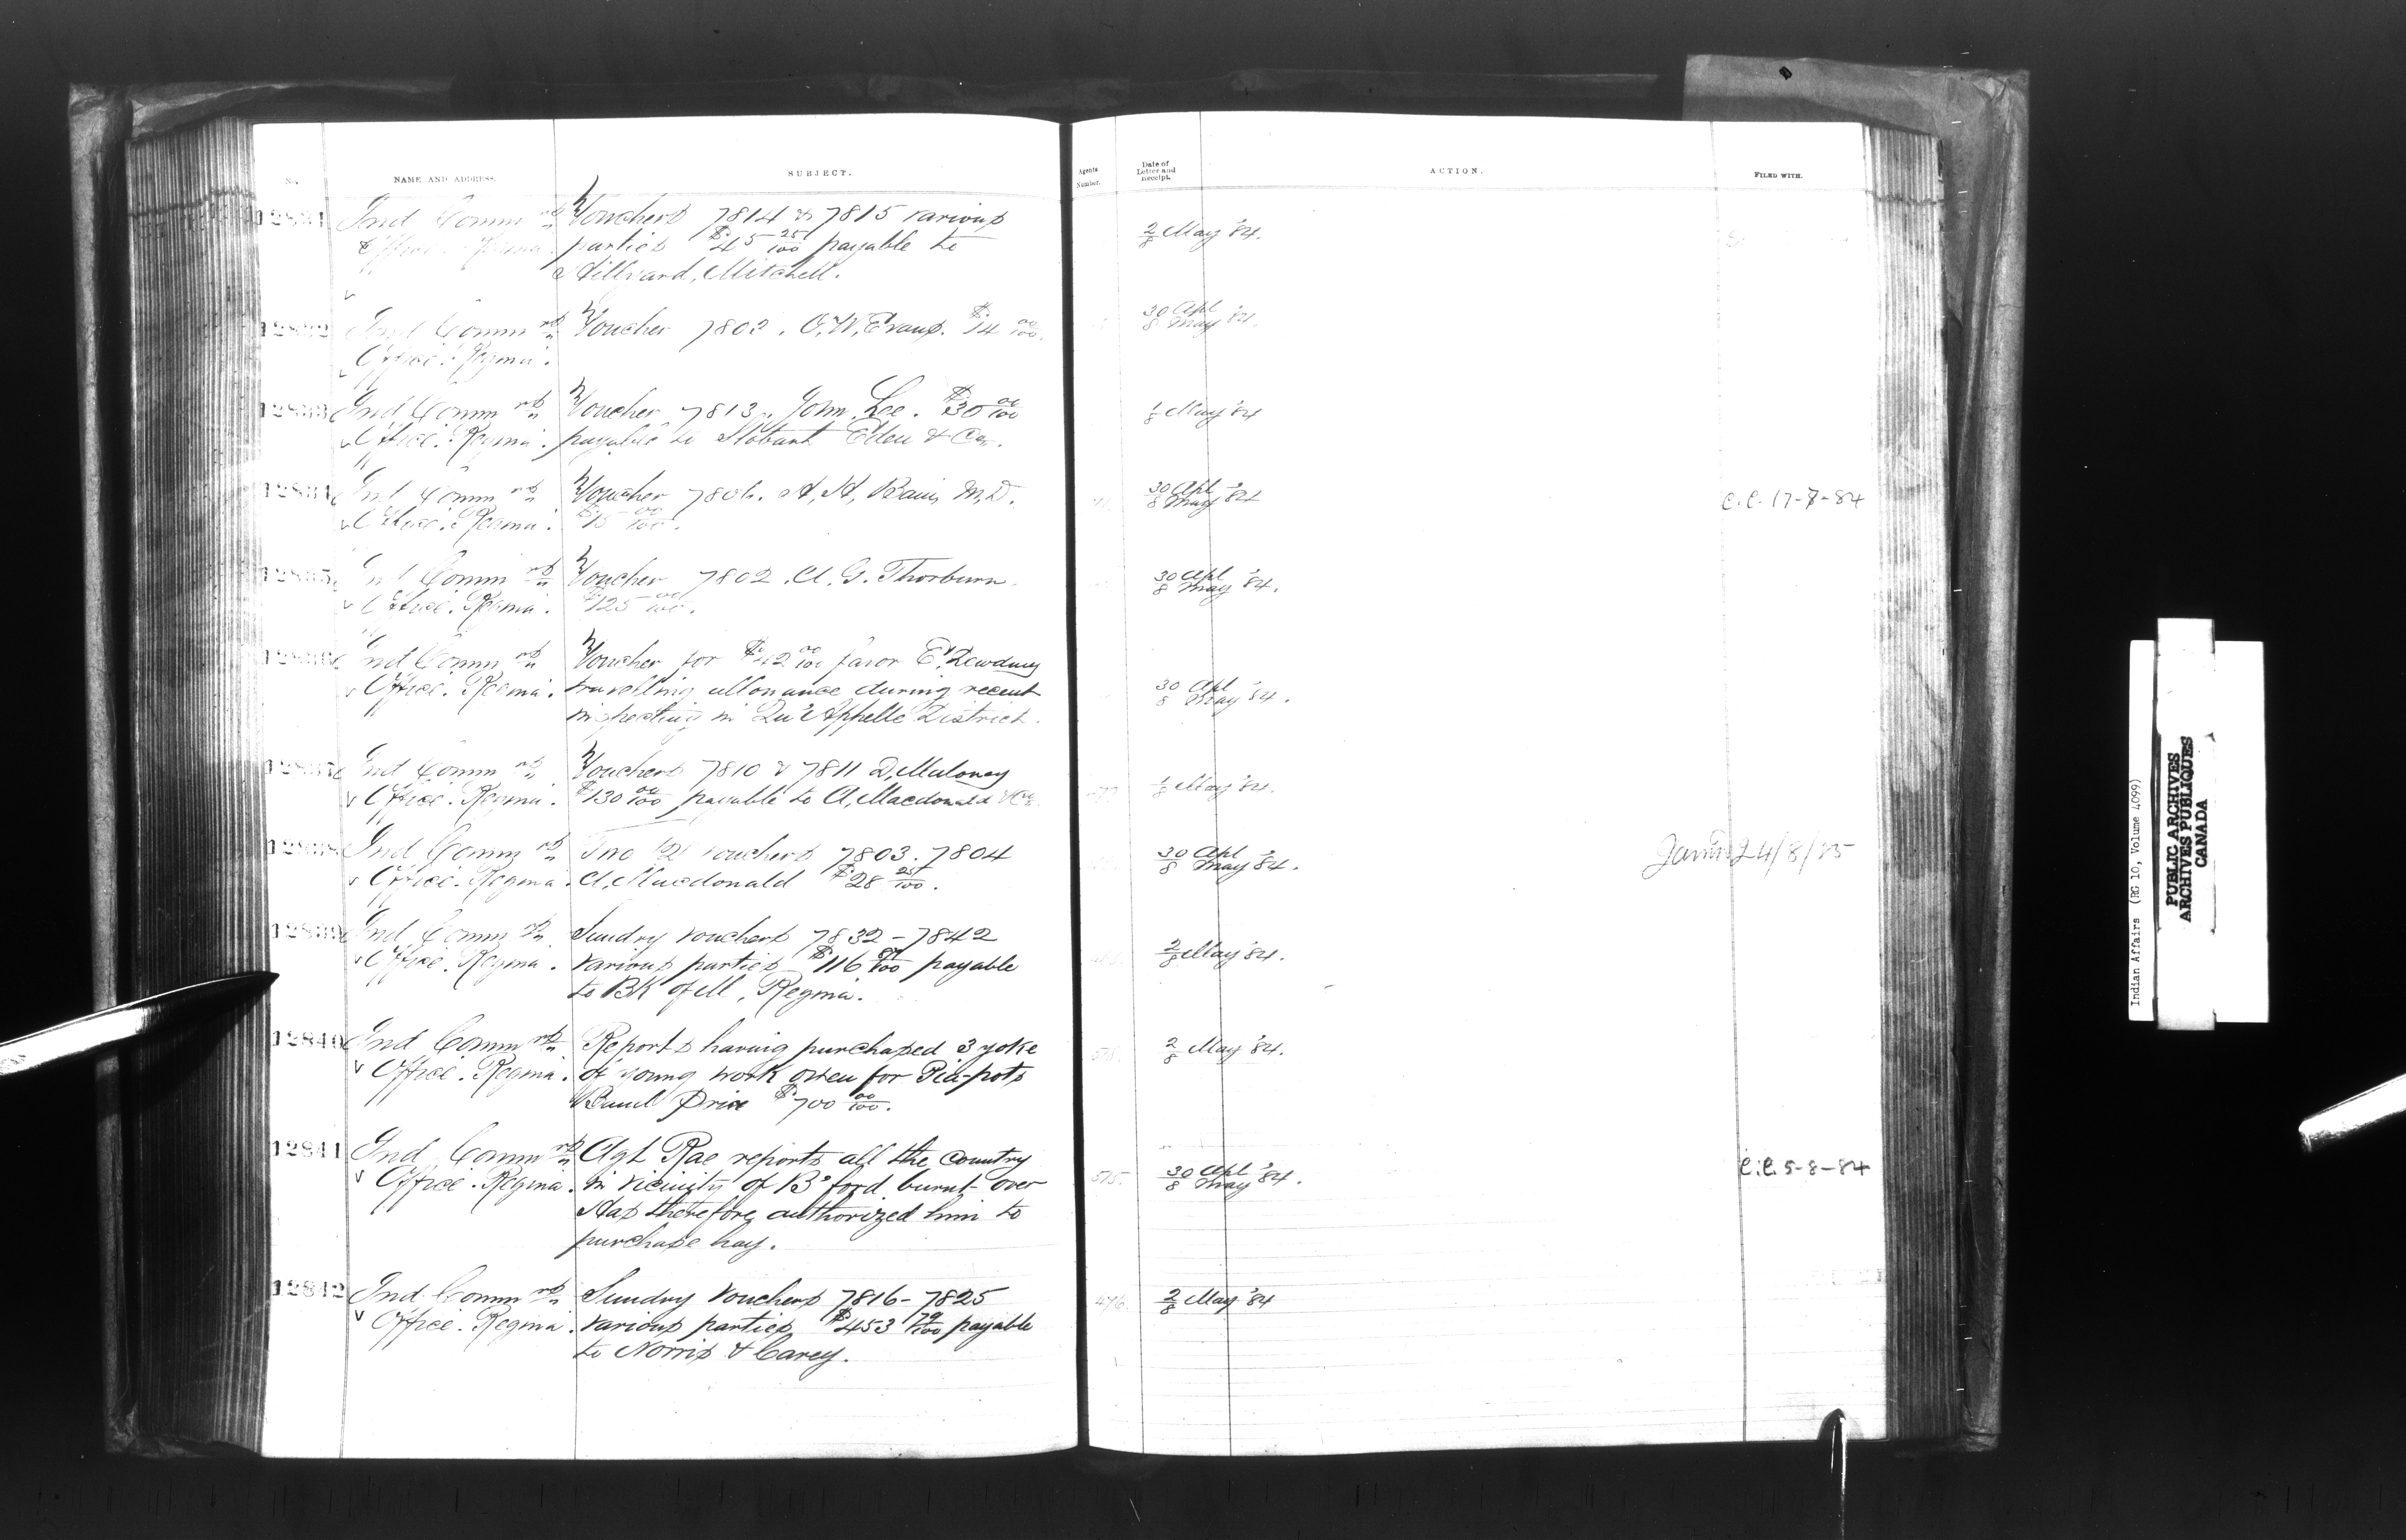 No.
NAME AND ADDRESS.
SUBJECT.
Agents Number.
Date of Letter and Receipt.
ACTION.
FILED WITH.
12831 Ind Commrs Vouchers 7814 & 7815 various
Office. Regina. parties $45 25/100 payable to
Hillyard, Mitchell.
2/8 May '84.
12832 Ind Commrs Voucher 7802. O.W. Evans. $14 00/100.
Office. Regina.
30 Apl
8 May '84.
12833 Ind Commrs Voucher 7813. John Lee. $30 00/100
Office. Regina. payable to Stobart Eden & Co.
1/8 May '84
12834 Ind Commrs Voucher 7806. A, Bain, M.D.
Office. Regina. $15 00/100.
30 Apl
8 May '84
C.C. 17-7-84
12835 Ind Commrs Voucher 7802. A. G. Thorburn.
Office. Regina. $125 00/100.
30 Apl
8 May '84.
12836 Ind Commrs Voucher for $42 00/100 favor E. Dewdney
Office. Regina. travelling allowance during recent
inspecting in Qu'Appelle District.
30 Apl
8 May '84.
12837 Ind Commrs Vouchers 7810 & 7811 D. Maloney
Office. Regina. $130 00/100 payable to A. Macdonald & Co.
1/8 May '84.
12838 Ind Commrs Two (2) vouchers 7803. 7804
Office. Regina. A. Macdonald $28 25/100.
30 Apl
8 May '84.
24/8/85
12839 Ind Commrs Sundry vouchers 7832 - 7842
Office. Regina. various parties $116 /100 payable
to Bk of M, Regina.
2/8 May '84.
12840 Ind Commrs Reports having purchased 3 yoke
Office. Regina. of young work oxen for Pia-pots
Band Price $700 00/100.
2/8 May '84.
12841 Ind Commrs Agt Rae reports all the country
Office. Regina. in vicinity of B'ford burnt over
Has therefore authorized him to
purchase hay.
575.
30 Apl
8 May '84.
C.C. 5-8-84
12842 Ind Commrs Sundry vouchers 7816 - 7825
Office. Regina. various parties $453 79/100 payable
to Norris & Carey.
476.
2/8 May '84
Indian Affairs (RG 10, Volume 4099)
PUBLIC ARCHIVES
ARCHIVES PUBLIQUES
CANADA